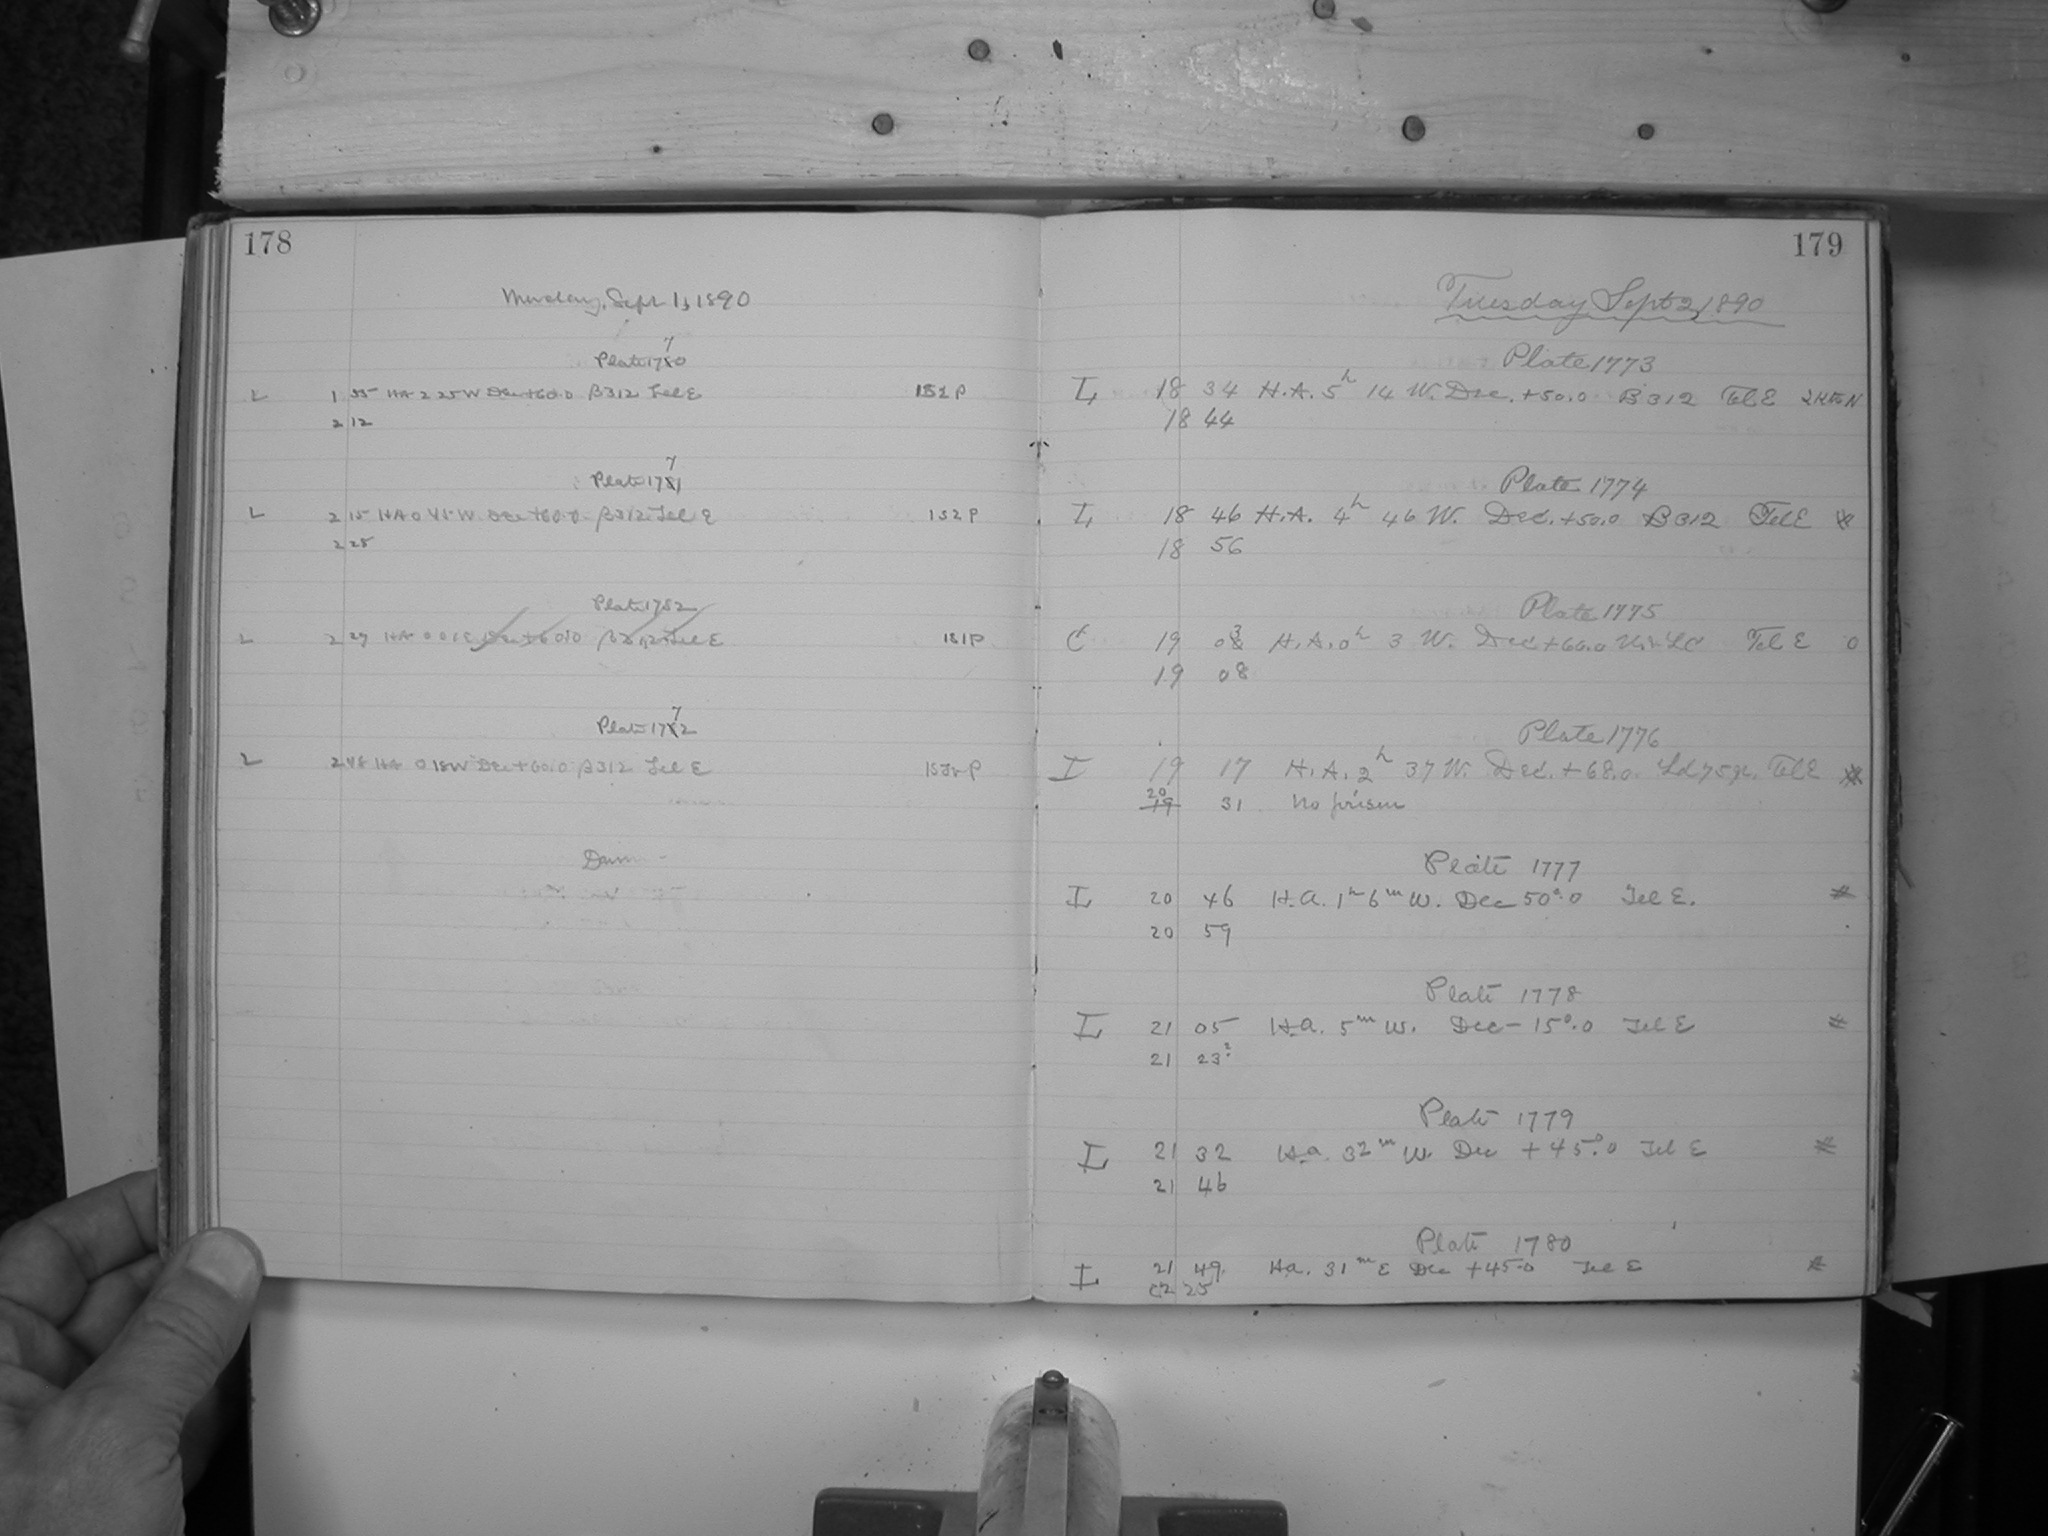 178
Monday, Sept 1, 1890
7
Plate 1780
L 1 55 HA 2 25 W Dec +60.0 B312 Tel E 152 P
2 12
7
Plate 1781
L 2 15 HA 0 45 W Dec +60.0 B312 Tel E 152 P
2 25
Plate 1782
L 2 29 HA 0 01 E Dec +60.0 B312 Tel E 151 P
7
Plate 1782
L 2 48 HA 0 18 W Dec +60.0 B312 Tel E P
Dawn
179
Tuesday Sept 2, 1890
Plate 1773
I 18 34 H.A. 5h 14 W. Dec. +50.0 B 312 Tel E
18 44
Plate 1774
I 18 46 H.A. 4h 46 W. Dec. +50.0 B 312 Tel E
18 56
Plate 1775
C 19 03 H.A. 0h 3 W. Dec +60.0 Tel E 0
19 08
Plate 1776
I 19 17 H.A. 2h 37 W. Dec. +68.0 Tel E
20
19 31 No prism
Plate 1777
I 20 46 H.A. 1h 6m W. Dec 50°.0 Tel E.
20 59
Plate 1778
I 21 05 H.a. 5m W. Dec - 15°.0 Tel E
21 23?
Plate 1779
I 21 32 H.a. 32m W. Dec + 45°.0 Tel E
21 46
Plate 1780
I 21 49 H.a. 31m E Dec +45.0 Tel E
22 25